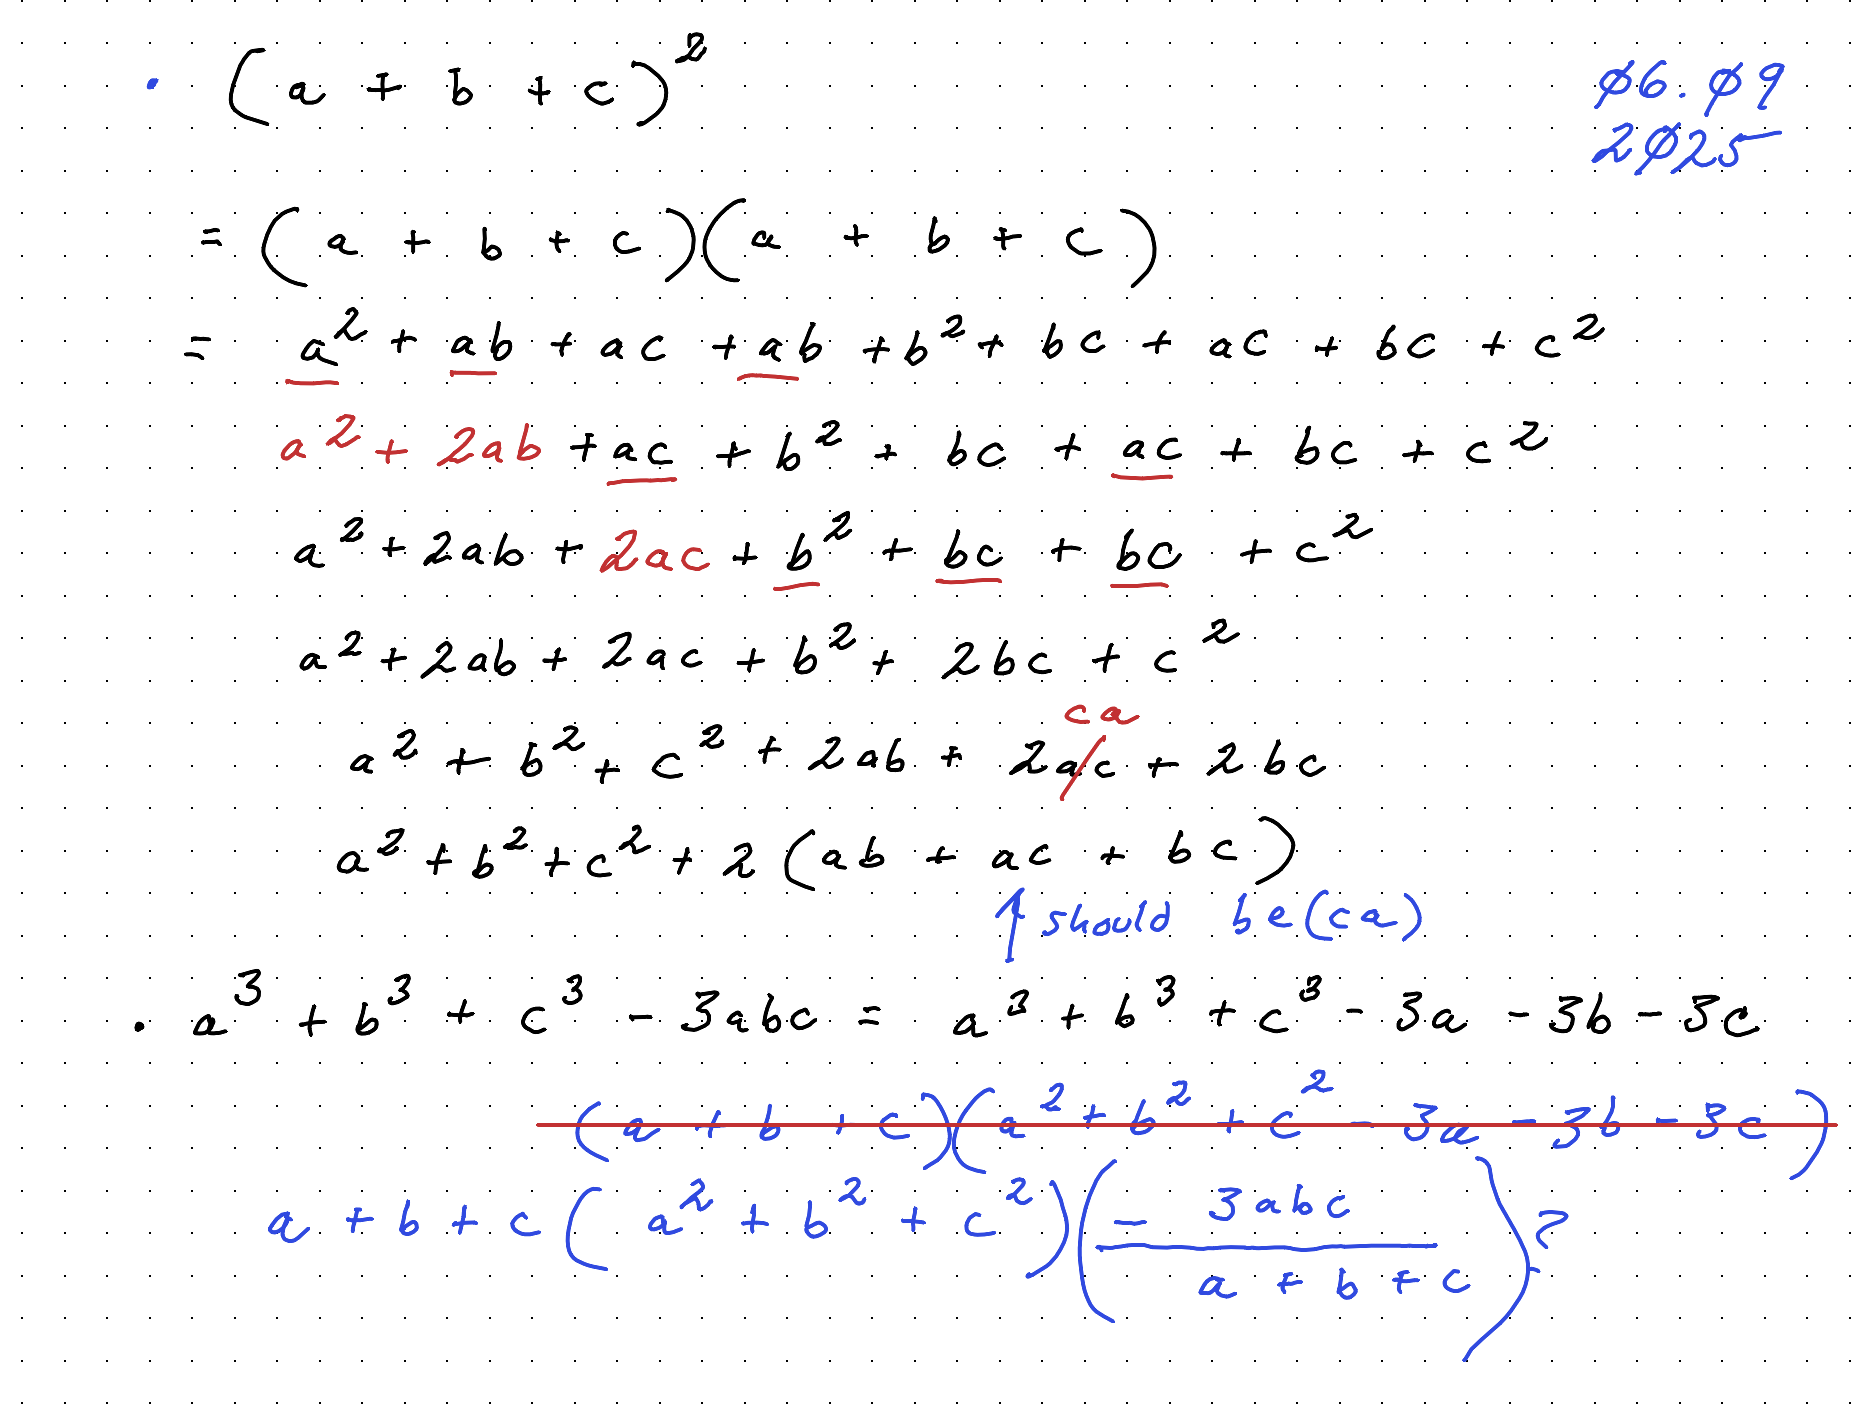 · (a + b + c)²
ø6.ø9
2ø25
= (a + b + c)(a + b + c)
= a² + ab + ac + ab + b² + bc + ac + bc + c²
a² + 2ab + ac + b² + bc + ac + bc + c²
a² + 2ab + 2ac + b² + bc + bc + c²
a² + 2ab + 2ac + b² + 2bc + c²
ca
a² + b² + c² + 2ab + 2ac + 2bc
a² + b² + c² + 2(ab + ac + bc)
↑ should be (ca)
· a³ + b³ + c³ - 3abc = a³ + b³ + c³ - 3a - 3b - 3c
(a + b + c)(a² + b² + c² - 3a - 3b - 3c)
a + b + c (a² + b² + c²)(- 3abc / a + b + c)?